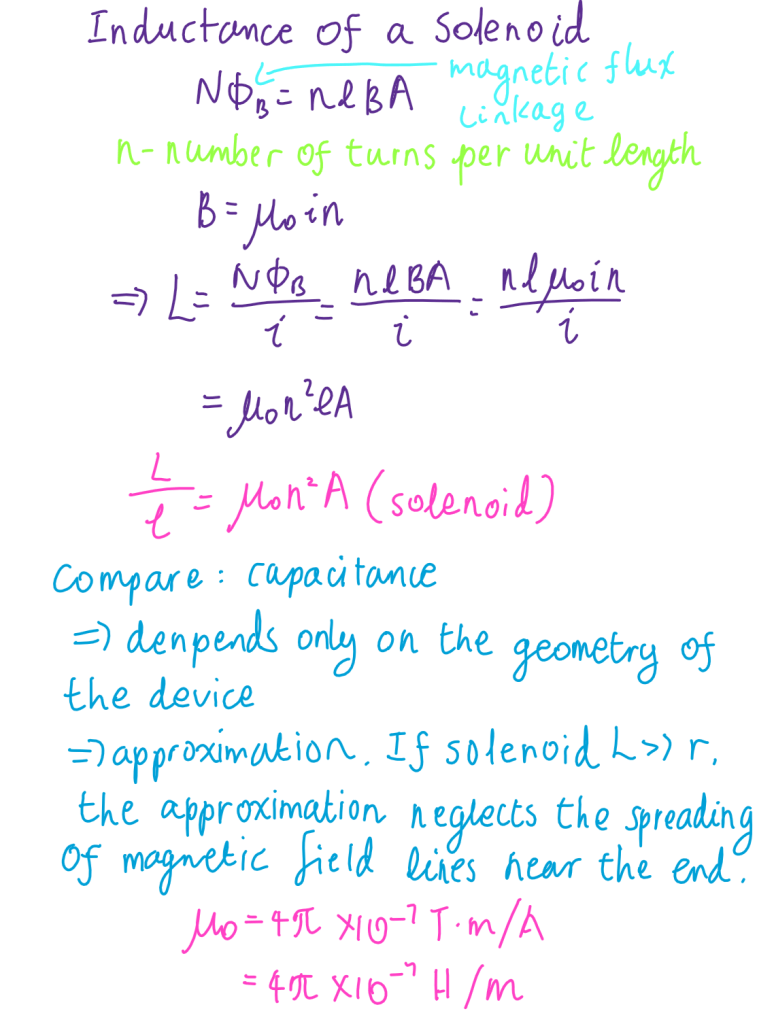 Inductance of a Solenoid
NΦ_B = nℓBA magnetic flux
linkage
n- number of turns per unit length
B = μ₀in
⇒ L = NΦ_B / i = nℓBA / i = nℓμ₀in / i
= μ₀n²ℓA
L / ℓ = μ₀n²A (solenoid)
Compare : capacitance
⇒ denpends only on the geometry of
the device
⇒ approximation. If solenoid L >> r,
the approximation neglects the spreading
of magnetic field lines near the end.
μ₀ = 4π ×10⁻⁷ T·m/A
= 4π ×10⁻⁷ H/m